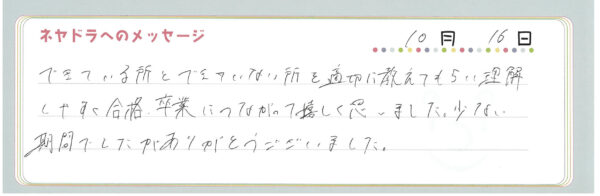 ネヤドラへのメッセージ
10月 16日
できている所とできていない所を適切に教えてもらい理解
しやすく合格、卒業につながって嬉しく思いました。少ない
期間でしたがありがとうございました。